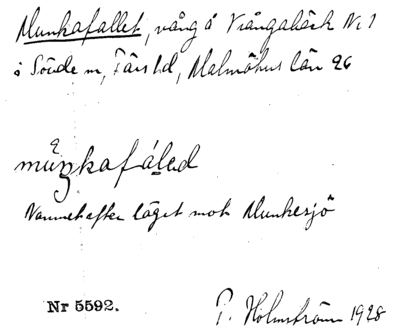 Munkafallet, vång å Vrångabäck No 1
i Sövde sn, Färs hd, Malmöhus län 26
munkafáləd
Namnet efter läget mot Munkesjö
Nr 5592.
P. Holmström 1928